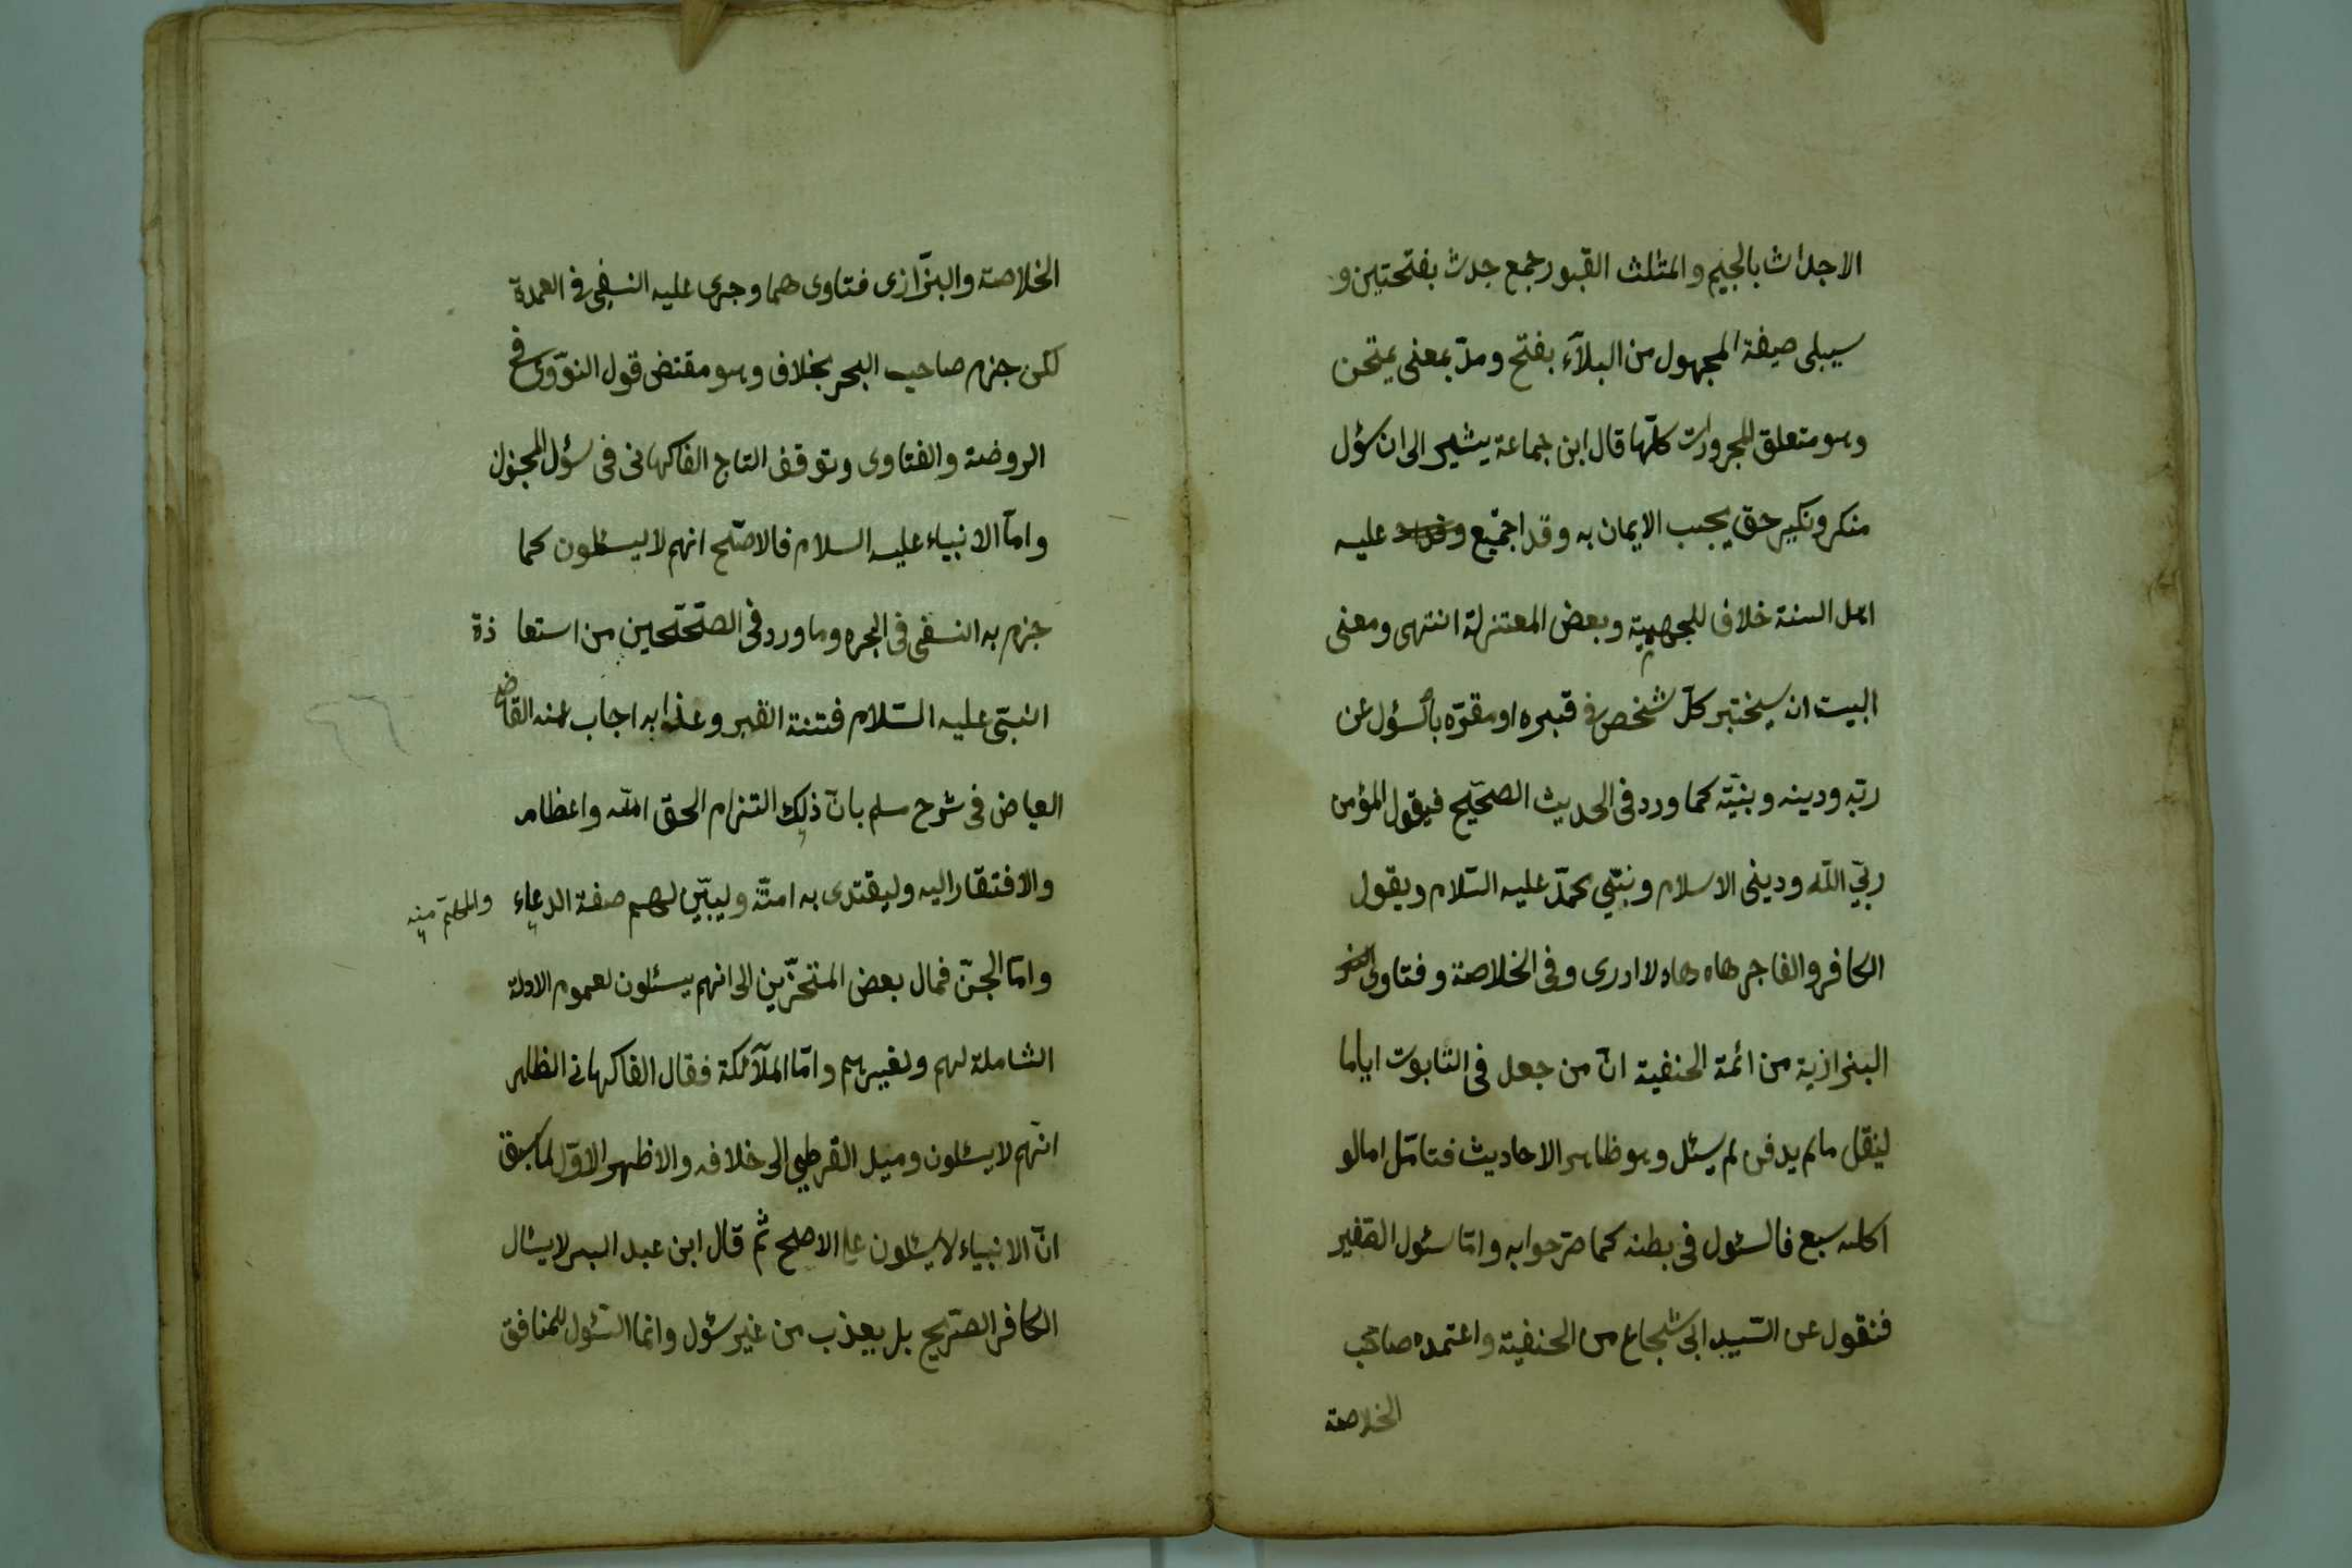 الاجداث بالجيم والمثلث القبور جمع جدث بفتحتين و
سيبلى صيغة المجهول من البلآء بفتح ومدّ بمعنى يمتحن
وهو متعلق للمجرورات كلّها قال ابن جماعة يشير الى ان سؤل
منكر ونكير حق يجب الايمان به وقد اجمّع عليه
اهل السنة خلاف للجهمية وبعض المعتزلة انتهى ومعنى
البيت ان سيختبر كلّ شخص فى قبره او مقرّه بالسؤل عن
ربّه ودينه ونبيّه كما ورد فى الحديث الصحّيح فيقول المؤمن
ربّي اللّه ودينى الاسلام ونبيّي محمّد عليه السّلام ويقول
الكافر والفاجر هاه هاه لا ادرى وفى الخلاصة وفتاوى
البزازية من ائمة الحنفية انّ من جعل فى التابوت اياما
لينقل مالم يدفن لم يسئل وهو ظاهر الاحاديث فتامّل امالو
اكله سبع فالسئول فى بطنه كما مرّ جوابه وامّا سئول الصغير
فنقول عن السّيد ابى شجاع من الحنفية واعتمده صاحب
الخلاصة
الخلاصة والبزّازى فتاوى هما وجرى عليه النسفى فى العمدة
لكن جزم صاحب البحر بخلاف وهو مقتضى قول النوّوى فى
الروضة والفتاوى وتوقف التاج الفاكهانى فى سؤل المجنون
وامّا الانبياء عليه السلام فالاصّح انهم لا يسئلون كما
جزم به النسفى فى البحره وما ورد فى الصّحّحين من استعا ذة
النبّى عليه السّلام فتنة القبر وعذابه اجاب عنه القاضى
العياض فى شرح سلم بانّ ذلك التزام الحقّ اللّه واعظامه
والافتقار اليه وليقتدى به امتّه وليبيّن لهم صفة الدعاء
وامّا الجنّ فمال بعض المتحرّين الى انهم يسئلون لعموم الادلة
الشاملة لهم ولغيرهم وامّا الملآئكة فقال الفاكهانى الظاهر
انّهم لا يسئلون وميل القرطبى الى خلافه والاظهر الاوّل لما سبق
انّ الانبياء لا يسئلون على الاصلح ثم قال ابن عبد البر لا يسئال
الكافر الصّريح بل يعذب من غير سئول وانما السّئول للمنافق